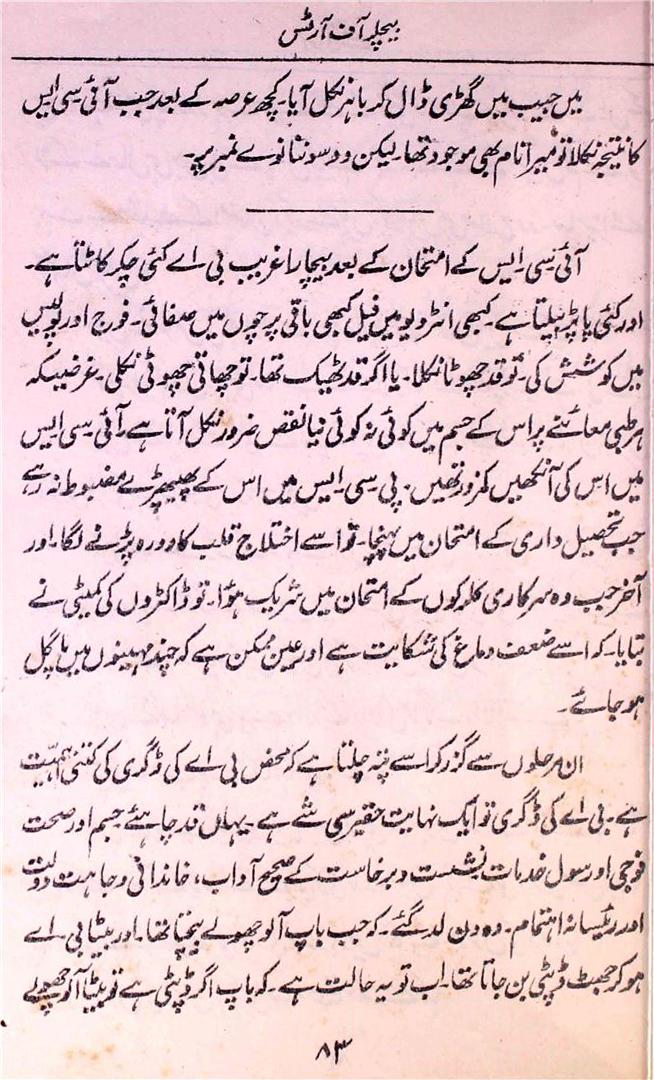 بیچلر آف آرٹس
میں جیب میں گھڑی ڈال کر باہر نکل آیا۔ کچھ عرصہ کے بعد جب آئی۔سی۔ایس
کا نتیجہ نکلا تو میرا نام بھی موجود تھا۔ لیکن دو سو ننانوے نمبر پر۔
آئی۔سی۔ایس کے امتحان کے بعد بیچارا غریب بی اے کئی چکر کاٹتا ہے۔
اور کئی پاپڑ بیلتا ہے۔ کبھی انٹرویو میں فیل کبھی باقی پرچوں میں صفائی۔ فوج اور پولیس
میں کوشش کی۔ تو قد چھوٹا نکلا۔ یا اگر قد ٹھیک تھا۔ تو چھاتی چھوٹی نکلی۔ غرضیکہ
ہر طبی معائنے پر اس کے جسم میں کوئی نہ کوئی نیا نقص ضرور نکل آتا ہے۔ آئی۔سی۔ایس
میں اس کی آنکھیں کمزور تھیں۔ پی۔سی۔ایس میں اس کے پھیپھڑے مضبوط نہ رہے
جب تحصیل داری کے امتحان میں پہنچا۔ تو اسے اختلاج قلب کا دورہ پڑنے لگا۔ اور
آخر جب وہ سرکاری کلرکوں کے امتحان میں شریک ہؤا۔ تو ڈاکٹروں کی کمیٹی نے
بتایا۔ کہ اسے ضعف دماغ کی شکایت ہے اور عین ممکن ہے کہ چند مہینوں میں پاگل
ہو جائے۔
ان مرحلوں سے گزر کر اسے پتہ چلتا ہے کہ محض بی اے کی ڈگری کی کتنی اہمیّت
ہے۔ بی اے کی ڈگری تو ایک نہایت حقیر سی شے ہے۔ یہاں قد چاہئے جسم اور صحت
فوجی اور سول خدمات نشست و برخاست کے صحیح آداب، خاندانی وجاہت دولت
اور رئیسانہ اہتمام۔ وہ دن لد گئے۔ کہ جب باپ آلو چھولے بیچتا تھا۔ اور بیٹا بی۔اے
ہو کر جھٹ ڈپٹی بن جاتا تھا۔ اب تو یہ حالت ہے۔ کہ باپ اگر ڈپٹی ہے تو بیٹا آلو چھولے
۸۳